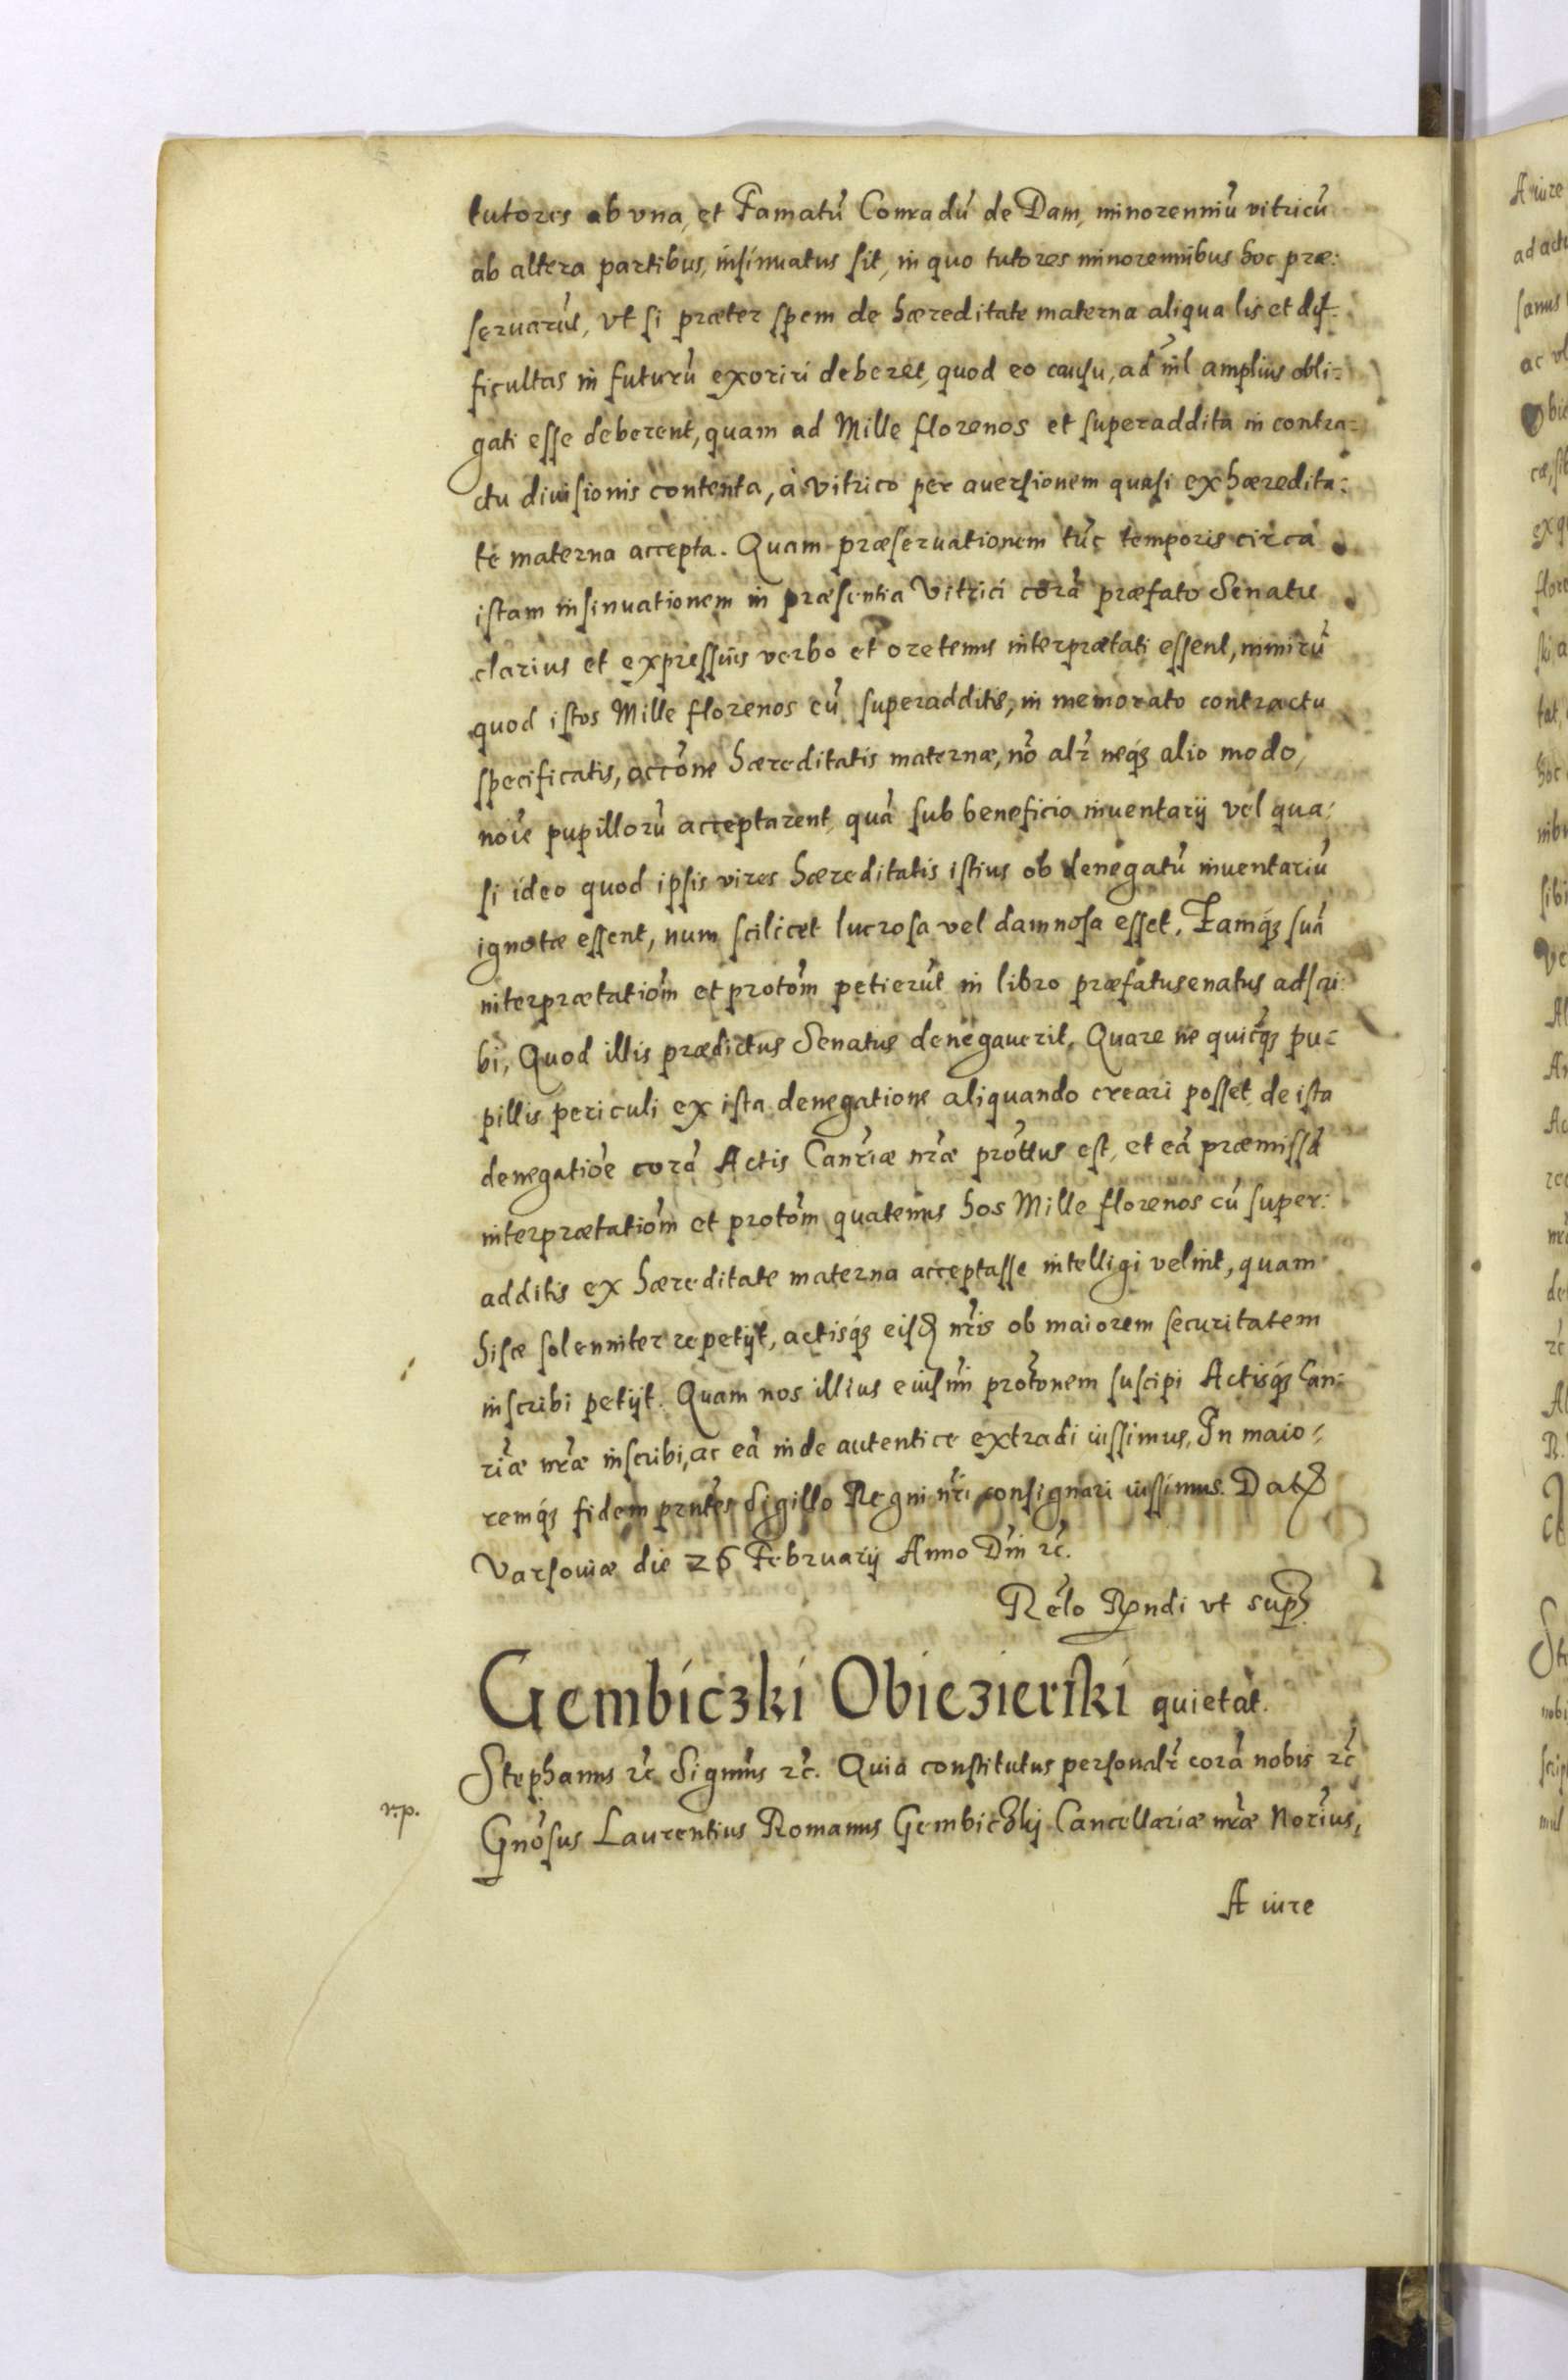 tutores ab vna, et Famatũ Conradũ de Dam, minorenniũ vitricũ
ab altera partibus, insinuatus sit, in quo tutores minorennibus hoc præ:
seruarũt, vt si præter spem de hæreditate materna aliqua lis et dif-
ficultas in futurũ exoriri deberet, quod eo causu, ad nil amplius obli:
gati esse deberent, quam ad Mille florenos et superaddita in contra:
ctu diuisionis contenta, à vitrico per auersionem quasi ex hæredita:
te materna accepta. Quam præseruationem tũc temporis circa
istam insinuationem in præsentia Vitrici corã præfato Senatu
clarius et expressius verbo et oretenus interprætati essent, nimirũ
quod istos Mille florenos cũ superadditis, in memorato contractu
specificatis, accõne hæreditatis maternæ, nõ alr̃ neq́ꝫ alio modo,
noĩe pupillorũ acceptarent, quã sub beneficio inuentarij vel qua:
si ideo quod ipsis vires hæreditatis istius ob denegatũ inuentariũ
ignotæ essent, num scilicet lucrosa vel damnosa esset. Eamq́ꝫ suã
interprætatiom̃ et protom̃ petierũt in libro præfatusenatus adscri
bi, Quod illis prædictus Senatus denegauerit. Quare ne quicq̃ꝫ pu:
pillis periculi ex ista denegatione aliquando creari posset, de ista
denegatiõe corã Actis Canr̃iæ nr̃æ prottus̃ est, et eã præmissã
interprætatiom̃ et protom̃ quatenus hos Mille florenos cũ super:
additis ex hæreditate materna acceptasse intelligi velint, quam
hisce solenniter repetijt, actisq́ꝫ eisd nr̃is ob maiorem securitatem
inscribi petijt. Quam nos illius eiusm̃i protõnem suscipi Actisq́ꝫ Can:
r̃iæ nr̃æ inscribi, ac eã inde autentice extradi iussimus. In maio:
remq́ꝫ fidem prñtes Sigillo Regni nr̃i consignari iussimus. Dat
Varsouiæ die 26 Februarij Anno Dñi ꝛc̃.
Rel̃o Rndi vt sup
Gembiczki Obiezierski quietat.
Stephanus ꝛc̃ Signim̃s ꝛc̃. Quia constitutus personalr̃ corã nobis ꝛc̃
r. p.
Gnõsus Laurentius Romanus Gembiczkij Cancellariæ nr̃æ Nor̃ius,
A iure